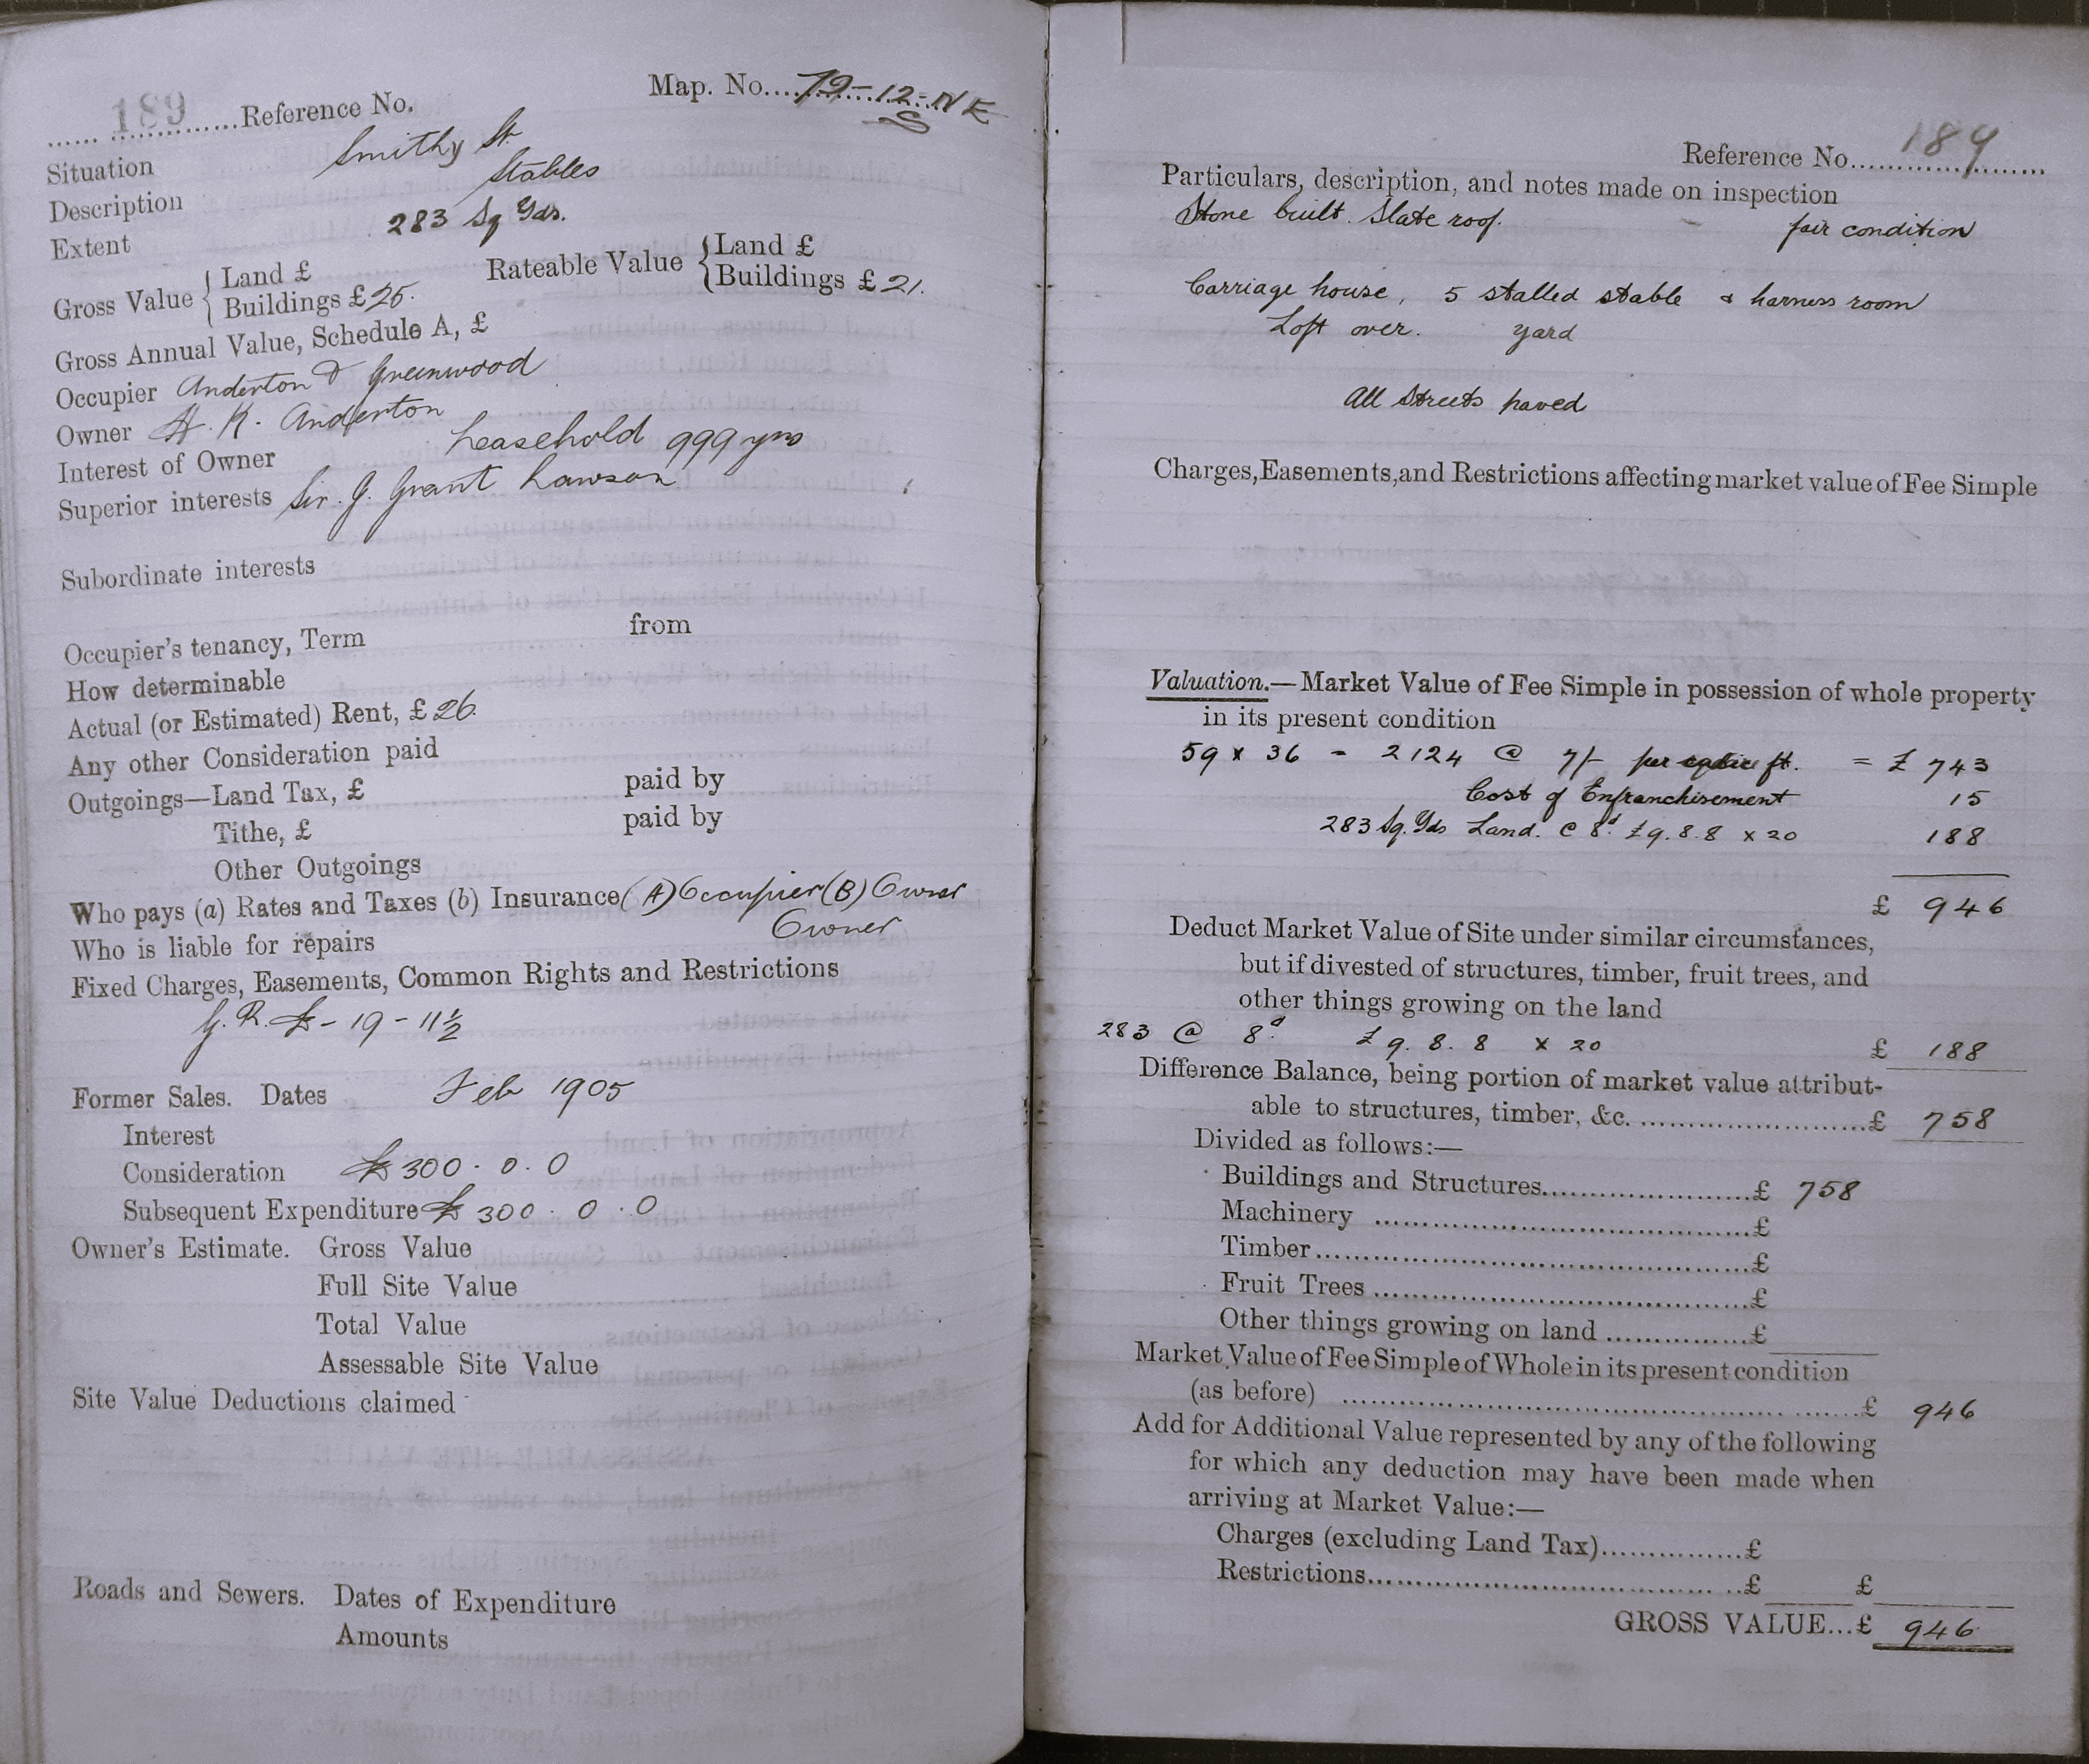 189 Reference No. Map. No. 79-12-NE
S
Situation Smithy St.
Description Stables
Extent 283 Sq Yds.
Gross Value { Land £ Rateable Value { Land £
Buildings £25. Buildings £21.
Gross Annual Value, Schedule A, £
Occupier Anderton & Greenwood
Owner H. K. Anderton
Interest of Owner Leasehold 999 yrs
Superior interests Sir. J. Grant Lawson
Subordinate interests
Occupier's tenancy, Term from
How determinable
Actual (or Estimated) Rent, £26.
Any other Consideration paid
Outgoings—Land Tax, £ paid by
Tithe, £ paid by
Other Outgoings
Who pays (a) Rates and Taxes (b) Insurance (A) Occupier (B) Owner
Who is liable for repairs Owner
Fixed Charges, Easements, Common Rights and Restrictions
G. R. £ - 19 - 11½
Former Sales. Dates Feb 1905
Interest
Consideration £300. 0. 0
Subsequent Expenditure £300. 0. 0
Owner's Estimate. Gross Value
Full Site Value
Total Value
Assessable Site Value
Site Value Deductions claimed
Roads and Sewers. Dates of Expenditure
Amounts
Reference No. 189
Particulars, description, and notes made on inspection
Stone built. Slate roof. fair condition
Carriage house, 5 stalled stable & harness room
Loft over. yard
All Streets paved
Charges, Easements, and Restrictions affecting market value of Fee Simple
Valuation.—Market Value of Fee Simple in possession of whole property
in its present condition
59 x 36 - 2124 @ 7/- per ft. = £ 743
Cost of Enfranchisement 15
283 Sq. Yds Land. @ 8d £9.8.8 x 20 188
£ 946
Deduct Market Value of Site under similar circumstances,
but if divested of structures, timber, fruit trees, and
other things growing on the land
283 @ 8d £9.8.8 x 20 £ 188
Difference Balance, being portion of market value attribut-
able to structures, timber, &c. £ 758
Divided as follows:—
Buildings and Structures £ 758
Machinery £
Timber £
Fruit Trees £
Other things growing on land £
Market Value of Fee Simple of Whole in its present condition
(as before) £ 946
Add for Additional Value represented by any of the following
for which any deduction may have been made when
arriving at Market Value:—
Charges (excluding Land Tax) £
Restrictions £ £
GROSS VALUE...£ 946